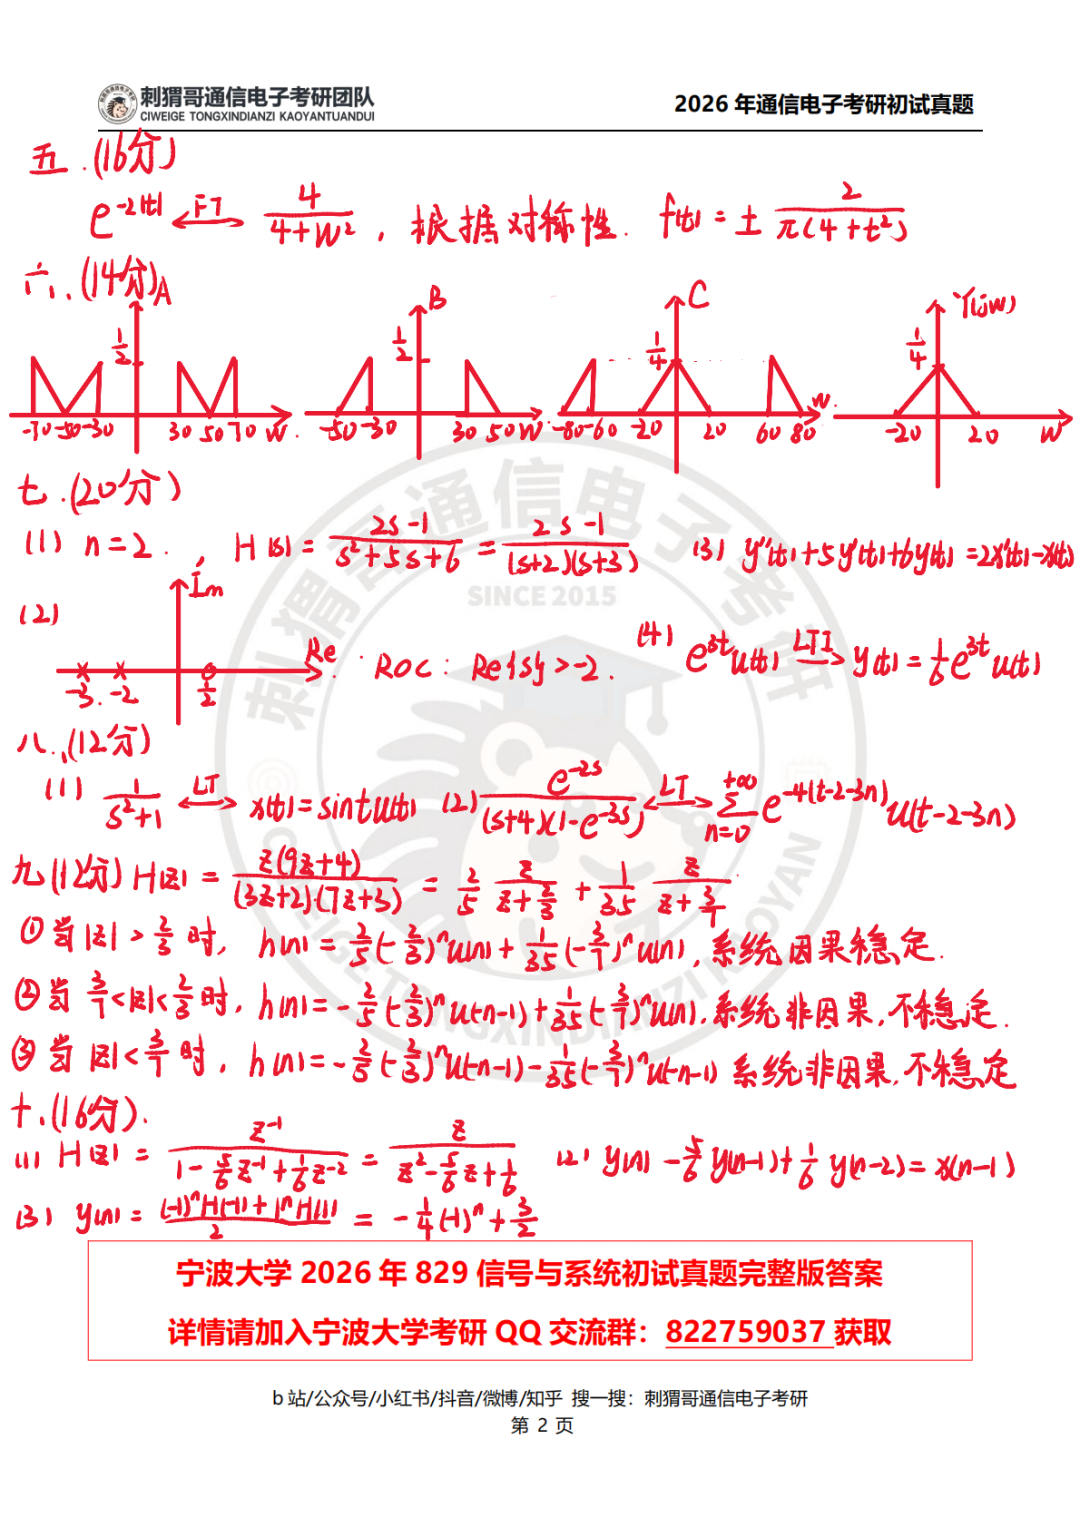 刺猬哥通信电子考研团队
CIWEIGE TONGXINDIANZI KAOYANTUANDUI
2026 年通信电子考研初试真题
五.(16分)
e^{-2|t|} ⟷FT 4/(4+W²), 根据对称性. f(t) = ± 2/(π(4+t²))
六、(14分)
A 1/2 -70 -50 -30 30 50 70 W
B 1/2 -50 -30 30 50 W
C 1/4 -80 -60 -20 20 60 80 W
Y(jw) 1/4 -20 20 W
七.(20分)
(1) n=2. , H(s) = (2s-1)/(s²+5s+6) = (2s-1)/((s+2)(s+3)) (3) y''(t)+5y'(t)+6y(t)=2x'(t)-x(t)
(2) Im Re -3. -2 1/2 . ROC: Re{s}>-2. (4) e^{3t}u(t) ⟶LTI y(t)=1/6 e^{3t}u(t)
八、(12分)
(1) 1/(s²+1) ⟷LT x(t)=sintu(t) (2) e^{-2s}/((s+4)(1-e^{-3s})) ⟷LT Σ_{n=0}^{+∞} e^{-4(t-2-3n)}u(t-2-3n)
九(12分) H(z) = z(9z+4)/((3z+2)(7z+3)) = 2/5 z/(z+2/3) + 1/35 z/(z+3/7)
① 当|z|>2/3时, h(n)=2/5(-2/3)^n u(n)+1/35(-3/7)^n u(n), 系统因果稳定.
② 当3/7<|z|<2/3时, h(n)=-2/5(-2/3)^n u(-n-1)+1/35(-3/7)^n u(n). 系统非因果,不稳定.
③ 当|z|<3/7时, h(n)=-2/5(-2/3)^n u(-n-1)-1/35(-3/7)^n u(-n-1) 系统非因果,不稳定
十、(16分).
(1) H(z) = z^{-1}/(1-5/6z^{-1}+1/6z^{-2}) = z/(z²-5/6z+1/6) (2) y(n)-5/6y(n-1)+1/6y(n-2)=x(n-1)
(3) y(n) = ((-1)^n H(-1)+1^n H(1))/2 = -1/4(-1)^n+3/2
宁波大学 2026 年 829 信号与系统初试真题完整版答案
详情请加入宁波大学考研 QQ 交流群：822759037 获取
b 站/公众号/小红书/抖音/微博/知乎 搜一搜：刺猬哥通信电子考研
第 2 页
刺猬哥通信电子考研
SINCE 2015
CIWEIGE TONGXINDIANZI KAOYAN